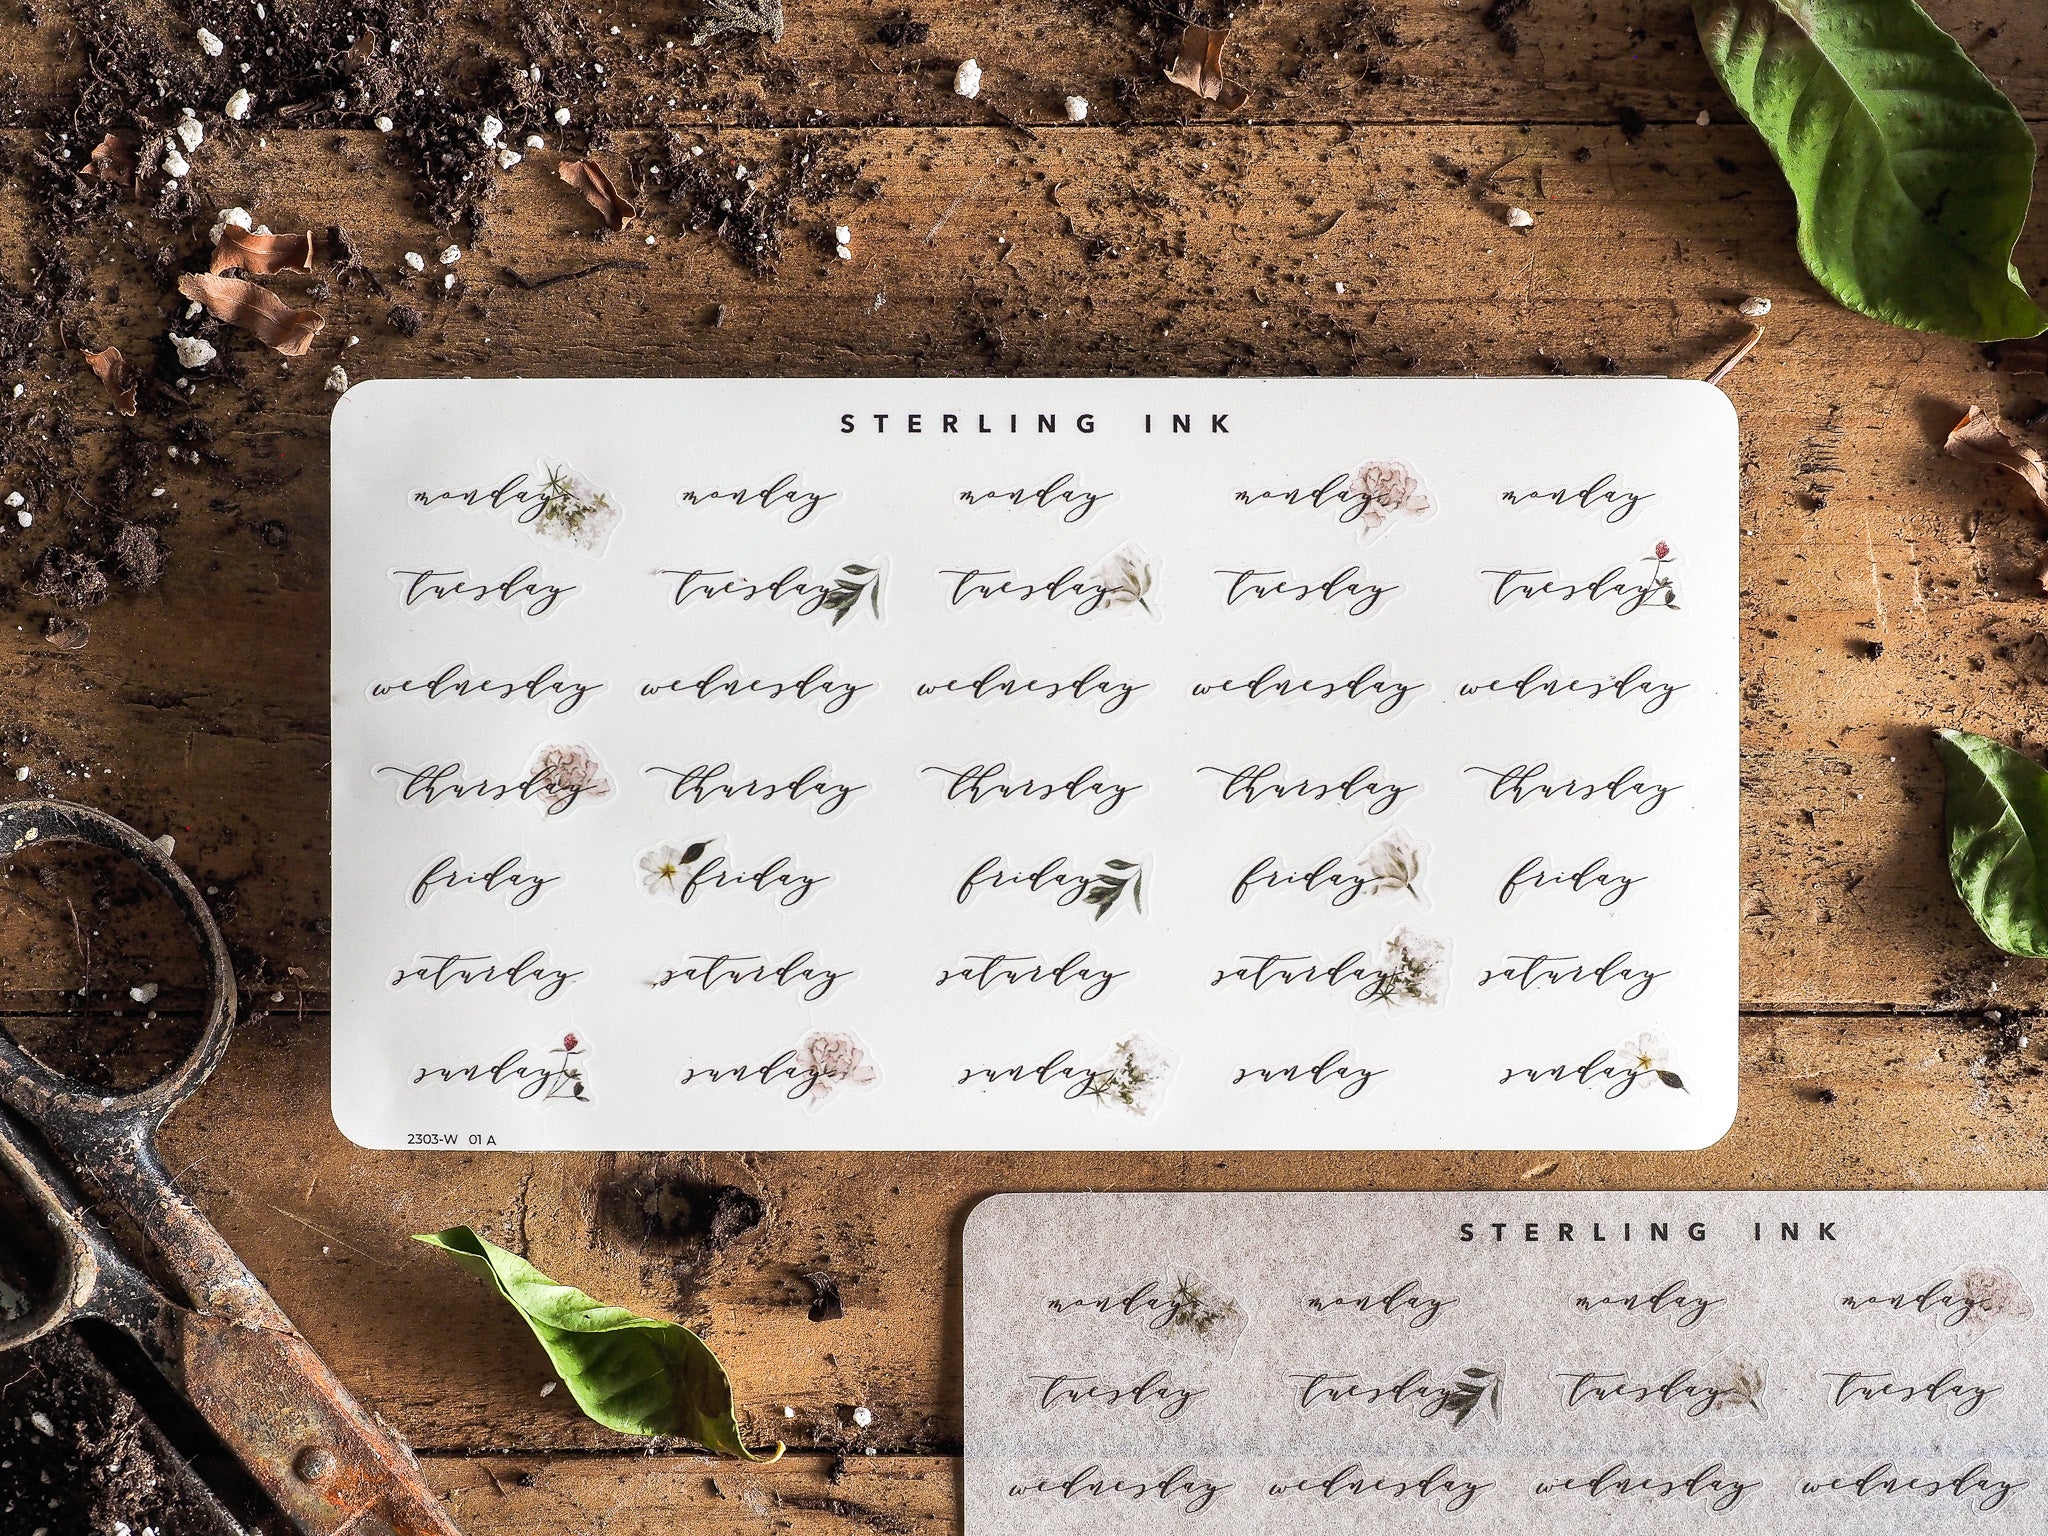 STERLING INK
monday monday monday monday monday
tuesday tuesday tuesday tuesday tuesday
wednesday wednesday wednesday wednesday wednesday
thursday thursday thursday thursday thursday
friday friday friday friday friday
saturday saturday saturday saturday saturday
sunday sunday sunday sunday sunday
2303-W 01 A
STERLING INK
monday monday monday monday
tuesday tuesday tuesday tuesday
wednesday wednesday wednesday wednesday